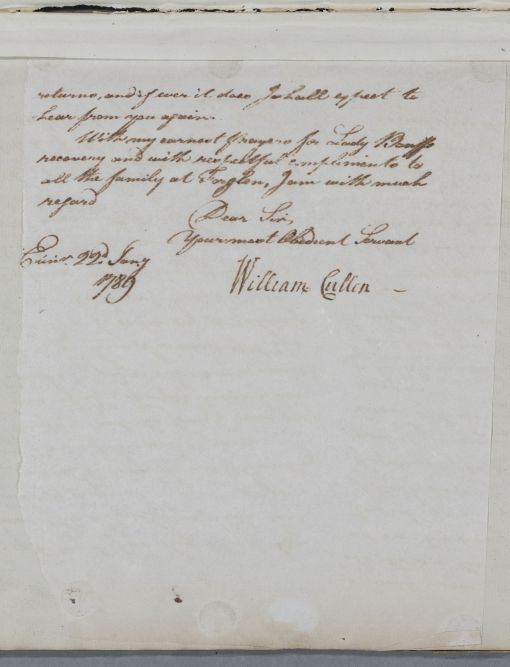 returns, and if ever it does I shall expect to
hear from you again.
With my earnest prayers for Lady Banffs
recovery and with respectful compliments to
all the family at Forglen, I am with much
regard
Dear Sir,
Your most Obedient Servant
Edinr. 22d. Jany
1789
William Cullen